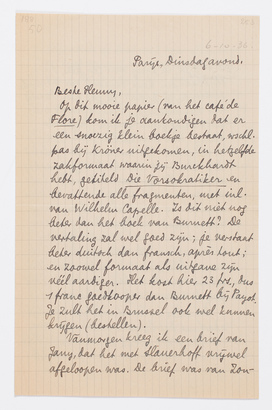 Parijs, Dinsdagavond.
Beste Henny,
Op dit mooie papier (van het café de
Flore) kom ik je aankondigen dat er
een snoezig klein boekje bestaat, wschl.
pas bij Kröner uitgekomen, in hetzelfde
zakformaat waarin jij Burckhardt
hebt, getiteld Die Vorsokratiker en
bevattende alle fragmenten, met inl.
van Wilhelm Capelle. Is dit niet nog
beter dan het boek van Burnett? De
vertaling zal wel goed zijn; je verstaat
beter duitsch dan fransch, après tout;
en zoowel formaat als uitgave zijn
véél aardiger. Het kost hier 23 frs, dus
1 franc goedkooper dan Burnett bij Payot.
Je zult het in Brussel ook wel kunnen
krijgen (bestellen).
Vanmorgen kreeg ik een brief van
Jany, dat het met Slauerhoff vrijwel
afgeloopen was. De brief was van Zon-